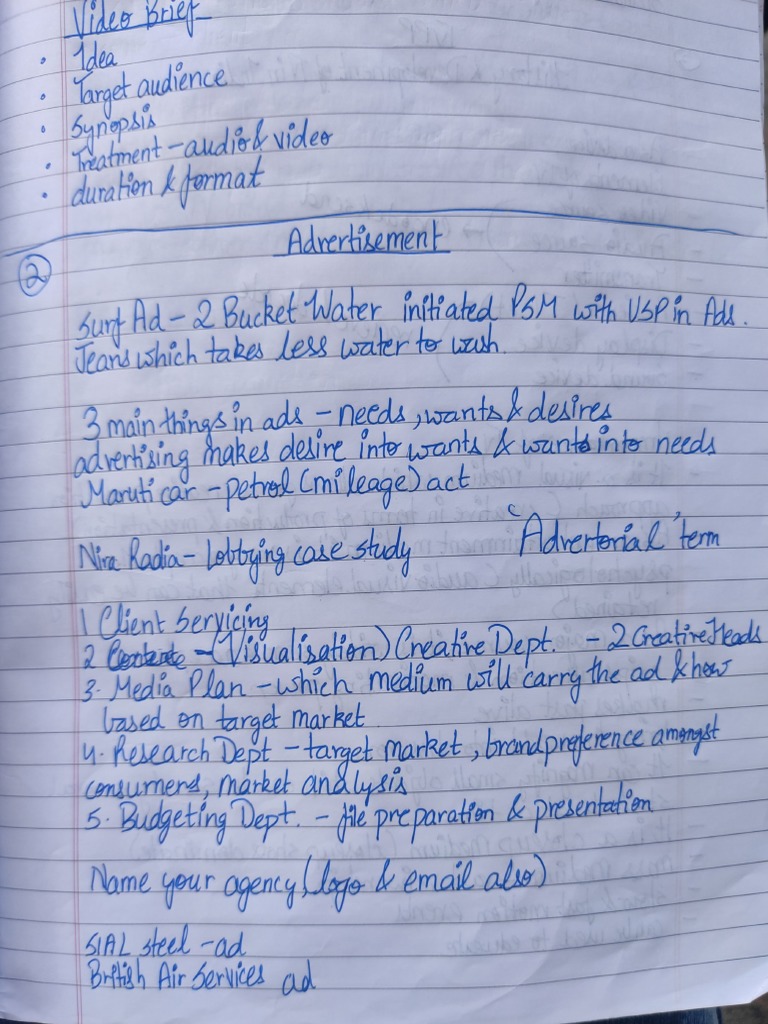 Video Brief
• Idea
• Target audience
• Synopsis
• Treatment - audio & video
• duration & format
Advertisement
2
Surf Ad - 2 Bucket Water initiated PSM with USP in Ads.
Jeans which takes less water to wash.
3 main things in ads - needs, wants & desires
advertising makes desire into wants & wants into needs
Maruti car - petrol (mileage) act
Nira Radia - Lobbying case study 'Advertorial' term
1 Client Servicing
2 - (Visualisation) Creative Dept. - 2 Creative Heads
3. Media Plan - which medium will carry the ad & how
based on target market
4. Research Dept - target market, brand preference amongst
consumers, market analysis
5. Budgeting Dept. - file preparation & presentation
Name your agency (logo & email also)
SIAL steel - ad
British Air Services ad